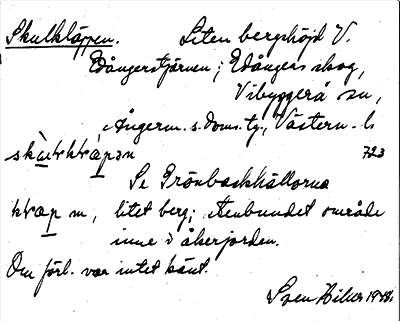 Skulkläppen. Liten bergshöjd V.
Edångerstjärnen; Edångers skog,
Vibyggerå sn,
Ångerm. s. doms. tg., Västern. l.
723
Se Grönbackhällorna
klap m, litet berg; stenbundet område
inne i åkerjorden.
Om förl. var intet känt.
Sven 1948